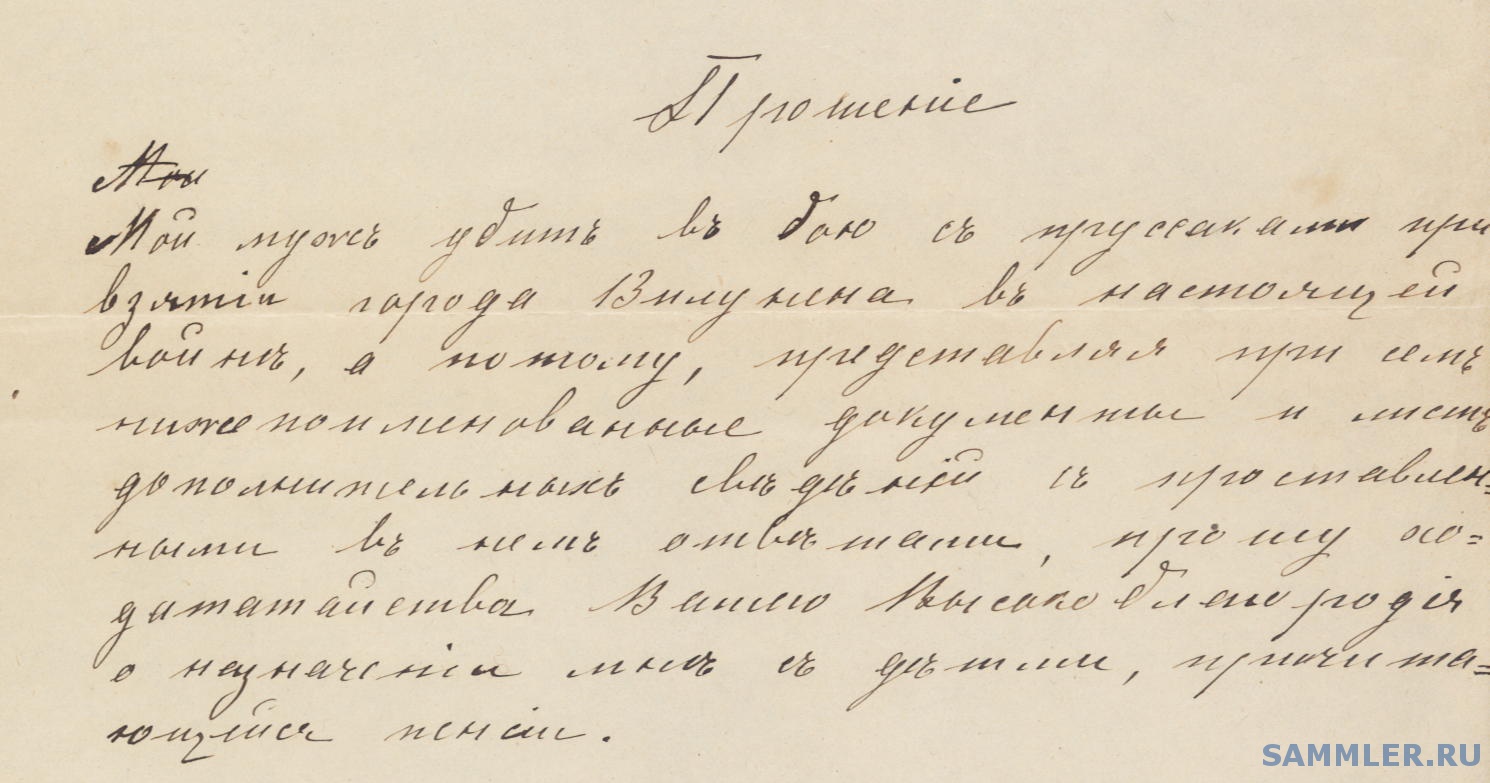 Прошеніе
Мои
Мой мужъ убитъ въ бою съ пруссаками при
взятіи города Вилунена въ настоящей
войнѣ, а потому, представляя при семъ
нижепоименованные документы и листъ
дополнительныхъ свѣдѣній съ проставлен=
ными въ немъ отвѣтами, прошу хо=
дататайства Вашего Высокоблагородія
о назначеніи мнѣ съ дѣтьми, причита=
ющейся пенсіи.
SAMMLER.RU